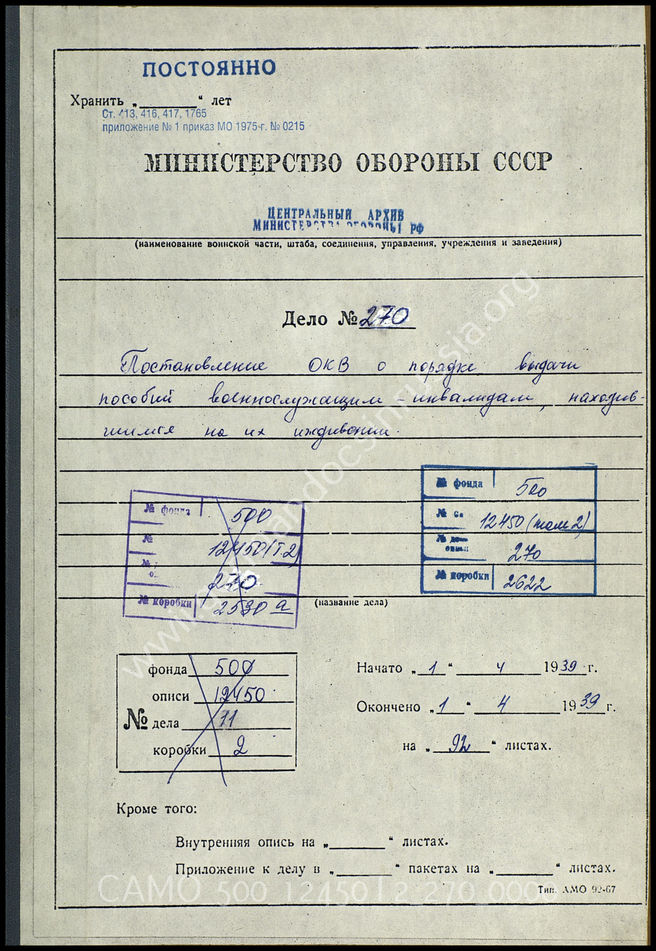 ПОСТОЯННО
Хранить „ “ лет
Ст. 413, 416, 417, 1765
приложение № 1 приказ МО 1975 г. № 0215
МИНИСТЕРСТВО ОБОРОНЫ СССР
ЦЕНТРАЛЬНЫЙ АРХИВ
МИНИСТЕРСТВА ОБОРОНЫ РФ
(наименование воинской части, штаба, соединения, управления, учреждения и заведения)
Дело № 270
Постановление ОКВ о порядке выдачи
пособий военнослужащим – инвалидам, находив-
шимся на их иждивении.
№ фонда 500
№ 12450 (Т2)
№ 270
№ коробки 2590 а
№ фонда 500
№ 12450 (том 2)
№ 270
№ коробки 2622
(название дела)
фонда 500
описи 12450
№ дела 11
коробки 2
Начато „1“ 4 1939 г.
Окончено „1“ 4 1939 г.
на „92“ листах.
Кроме того:
Внутренняя опись на „ “ листах.
Приложение к делу в „ “ пакетах на „ “ листах.
Тип. АМО 92-67
www.germandocsinrussia.org
CAMO 500_12450_2_270_000